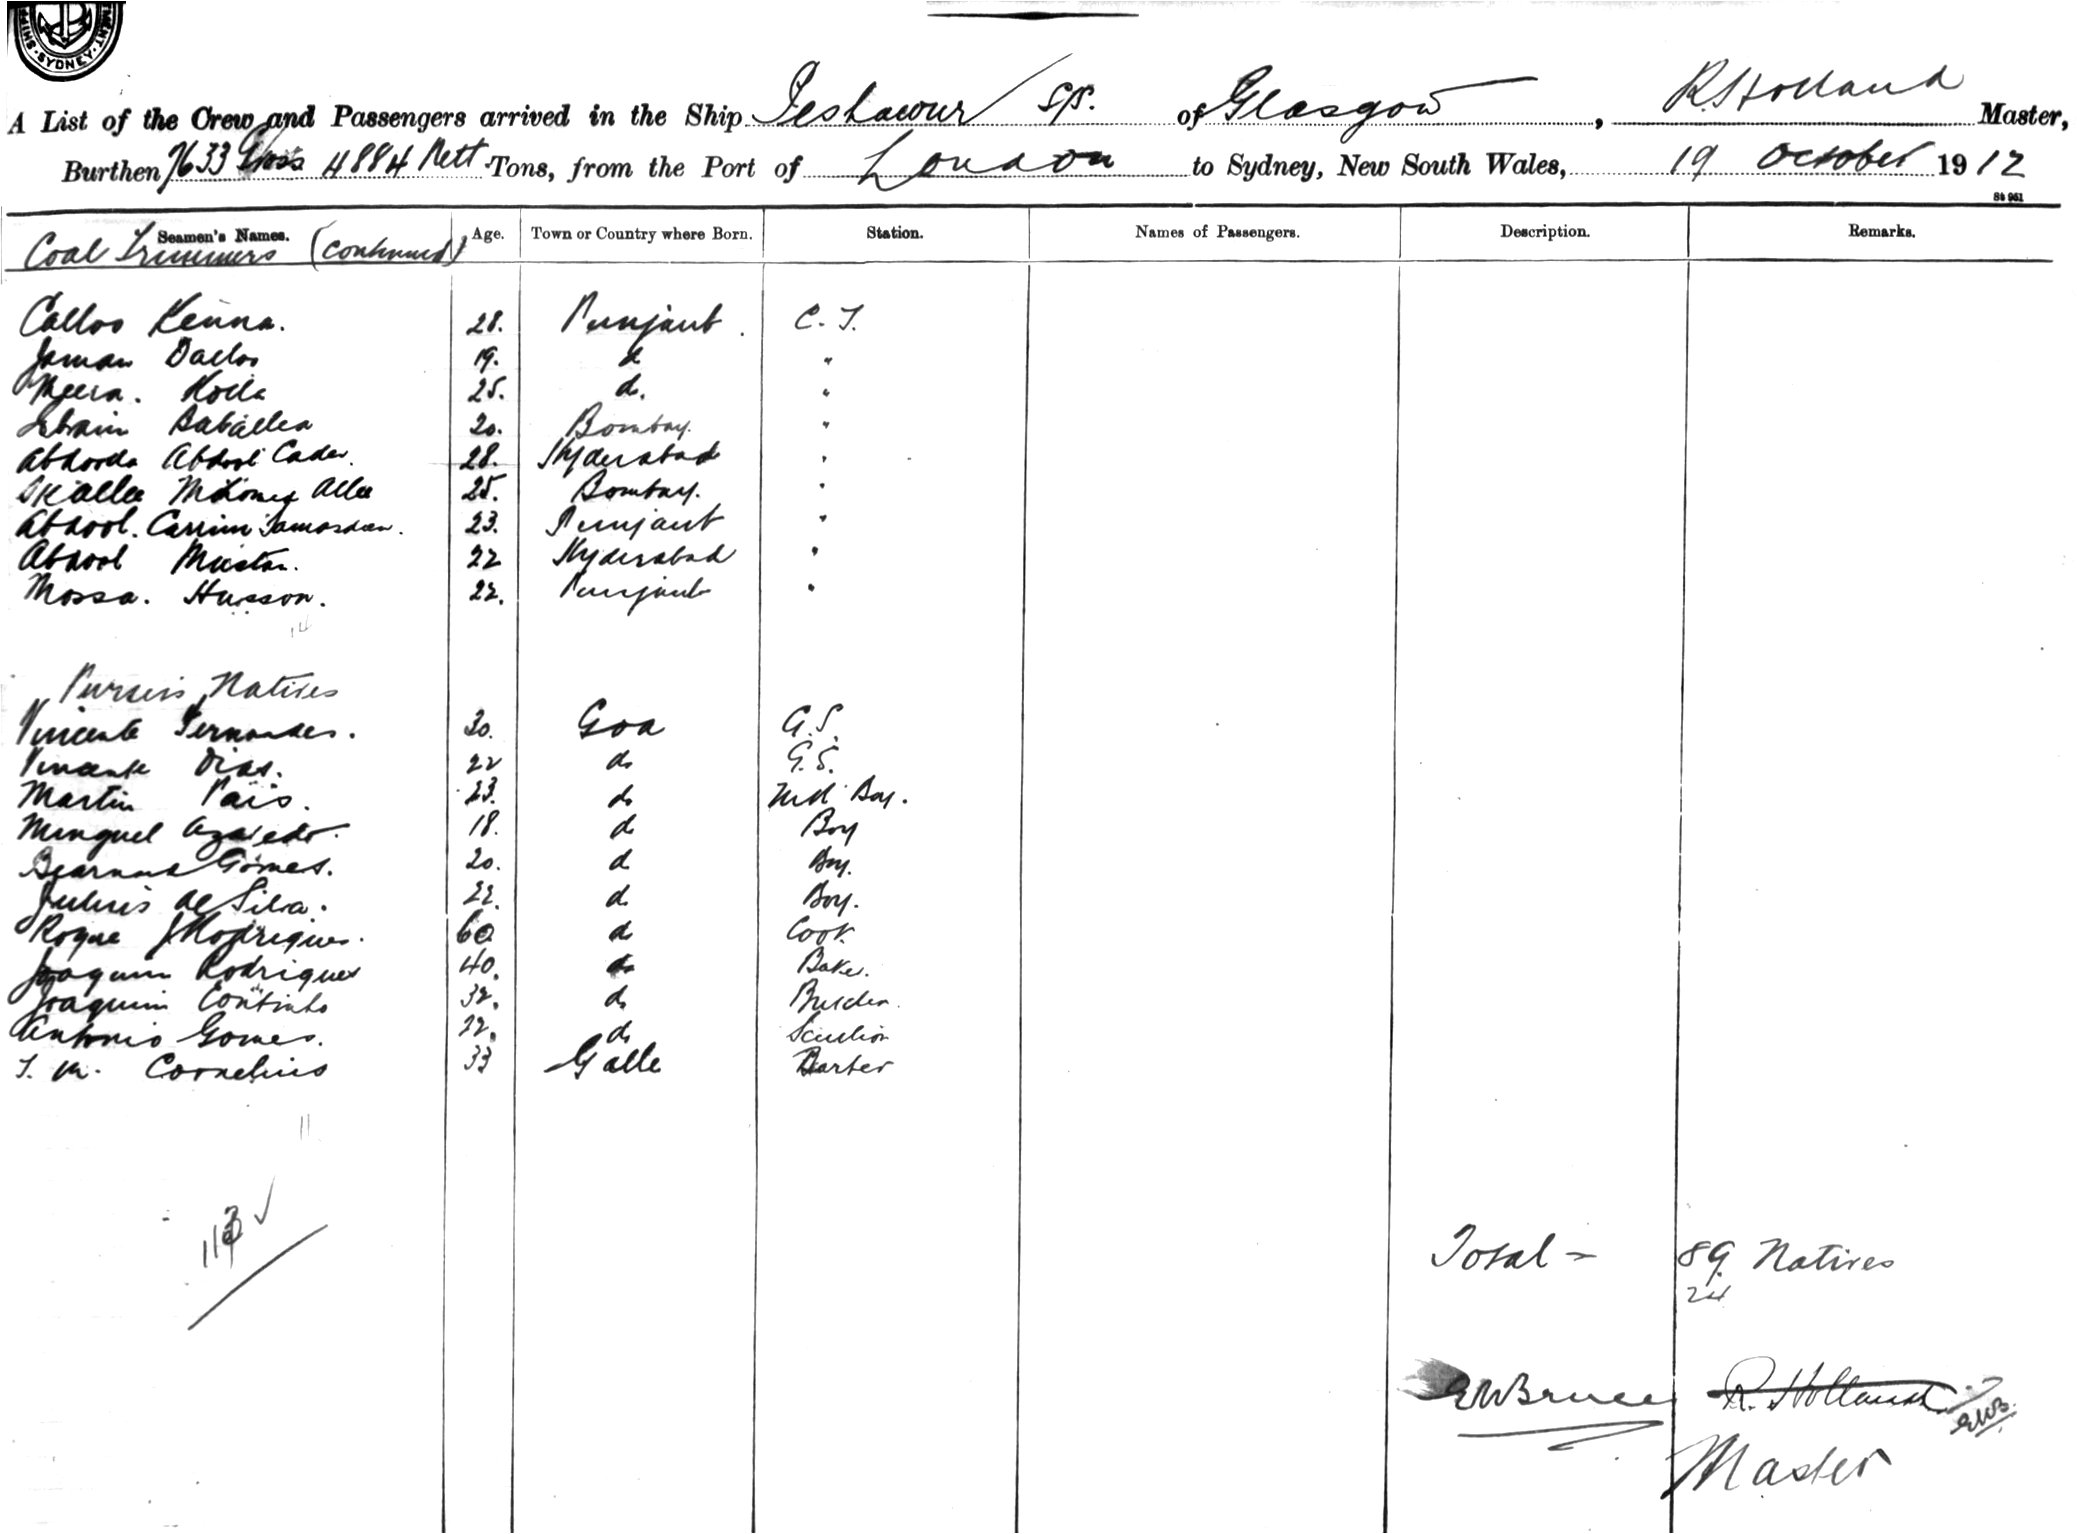 SHIP · SYDNEY · MENT
A List of the Crew and Passengers arrived in the Ship Peshawur of Glasgow, R. Holland Master,
Burthen 7633 Gross 4884 Nett Tons, from the Port of London to Sydney, New South Wales, 19 October 1912
St 951
Seamen's Names. Age. Town or Country where Born. Station. Names of Passengers. Description. Remarks.
Coal Trimmers (continued)
Calloo Kenna. 28. Punjaub. C. T.
Jaman Dalloo 19. do "
Meera. Koila 25. do. "
Ebrain Baballea 20. Bombay. "
Abdoola Abdool Cader. 28. Hyderabad "
Sk Allee Mahomed Allee 25. Bombay. "
Abdool. Carrim 23. Punjaub "
Abdool Mustan. 22 Hyderabad "
Mossa. Husson. 22. Punjaub "
14
Pursers Natives
Vincente Fernandes. 30. Goa G.S.
Vincente Dias. 22 do G.S.
Martin Pais. 23. do Boy.
Minguel Azavedo. 18. do Boy
Bearnard Gomes. 20. do Boy.
Julius de Silva. 22. do Boy.
Roque J Rodrigues. 60 do Cook.
Joaquim Rodrigues 40. do Baker.
Joaquim Continho 32. do Butcher.
Antonio Gomes. 22. do Scullion
T. M. Cornelius 33 Galle Barber
11
113 ✓
Total = 89 Natives
24
EWBruce R. Holland EWB.
Master